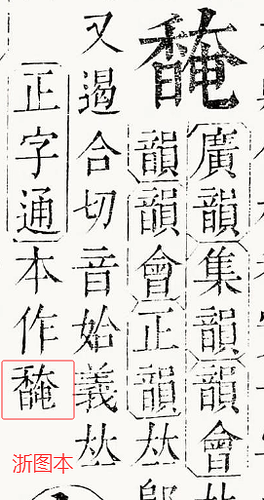 馣
廣韻集韻韻會
韻韻會正韻𠀤
又遏合切音始義𠀤
正字通本作馣
浙图本